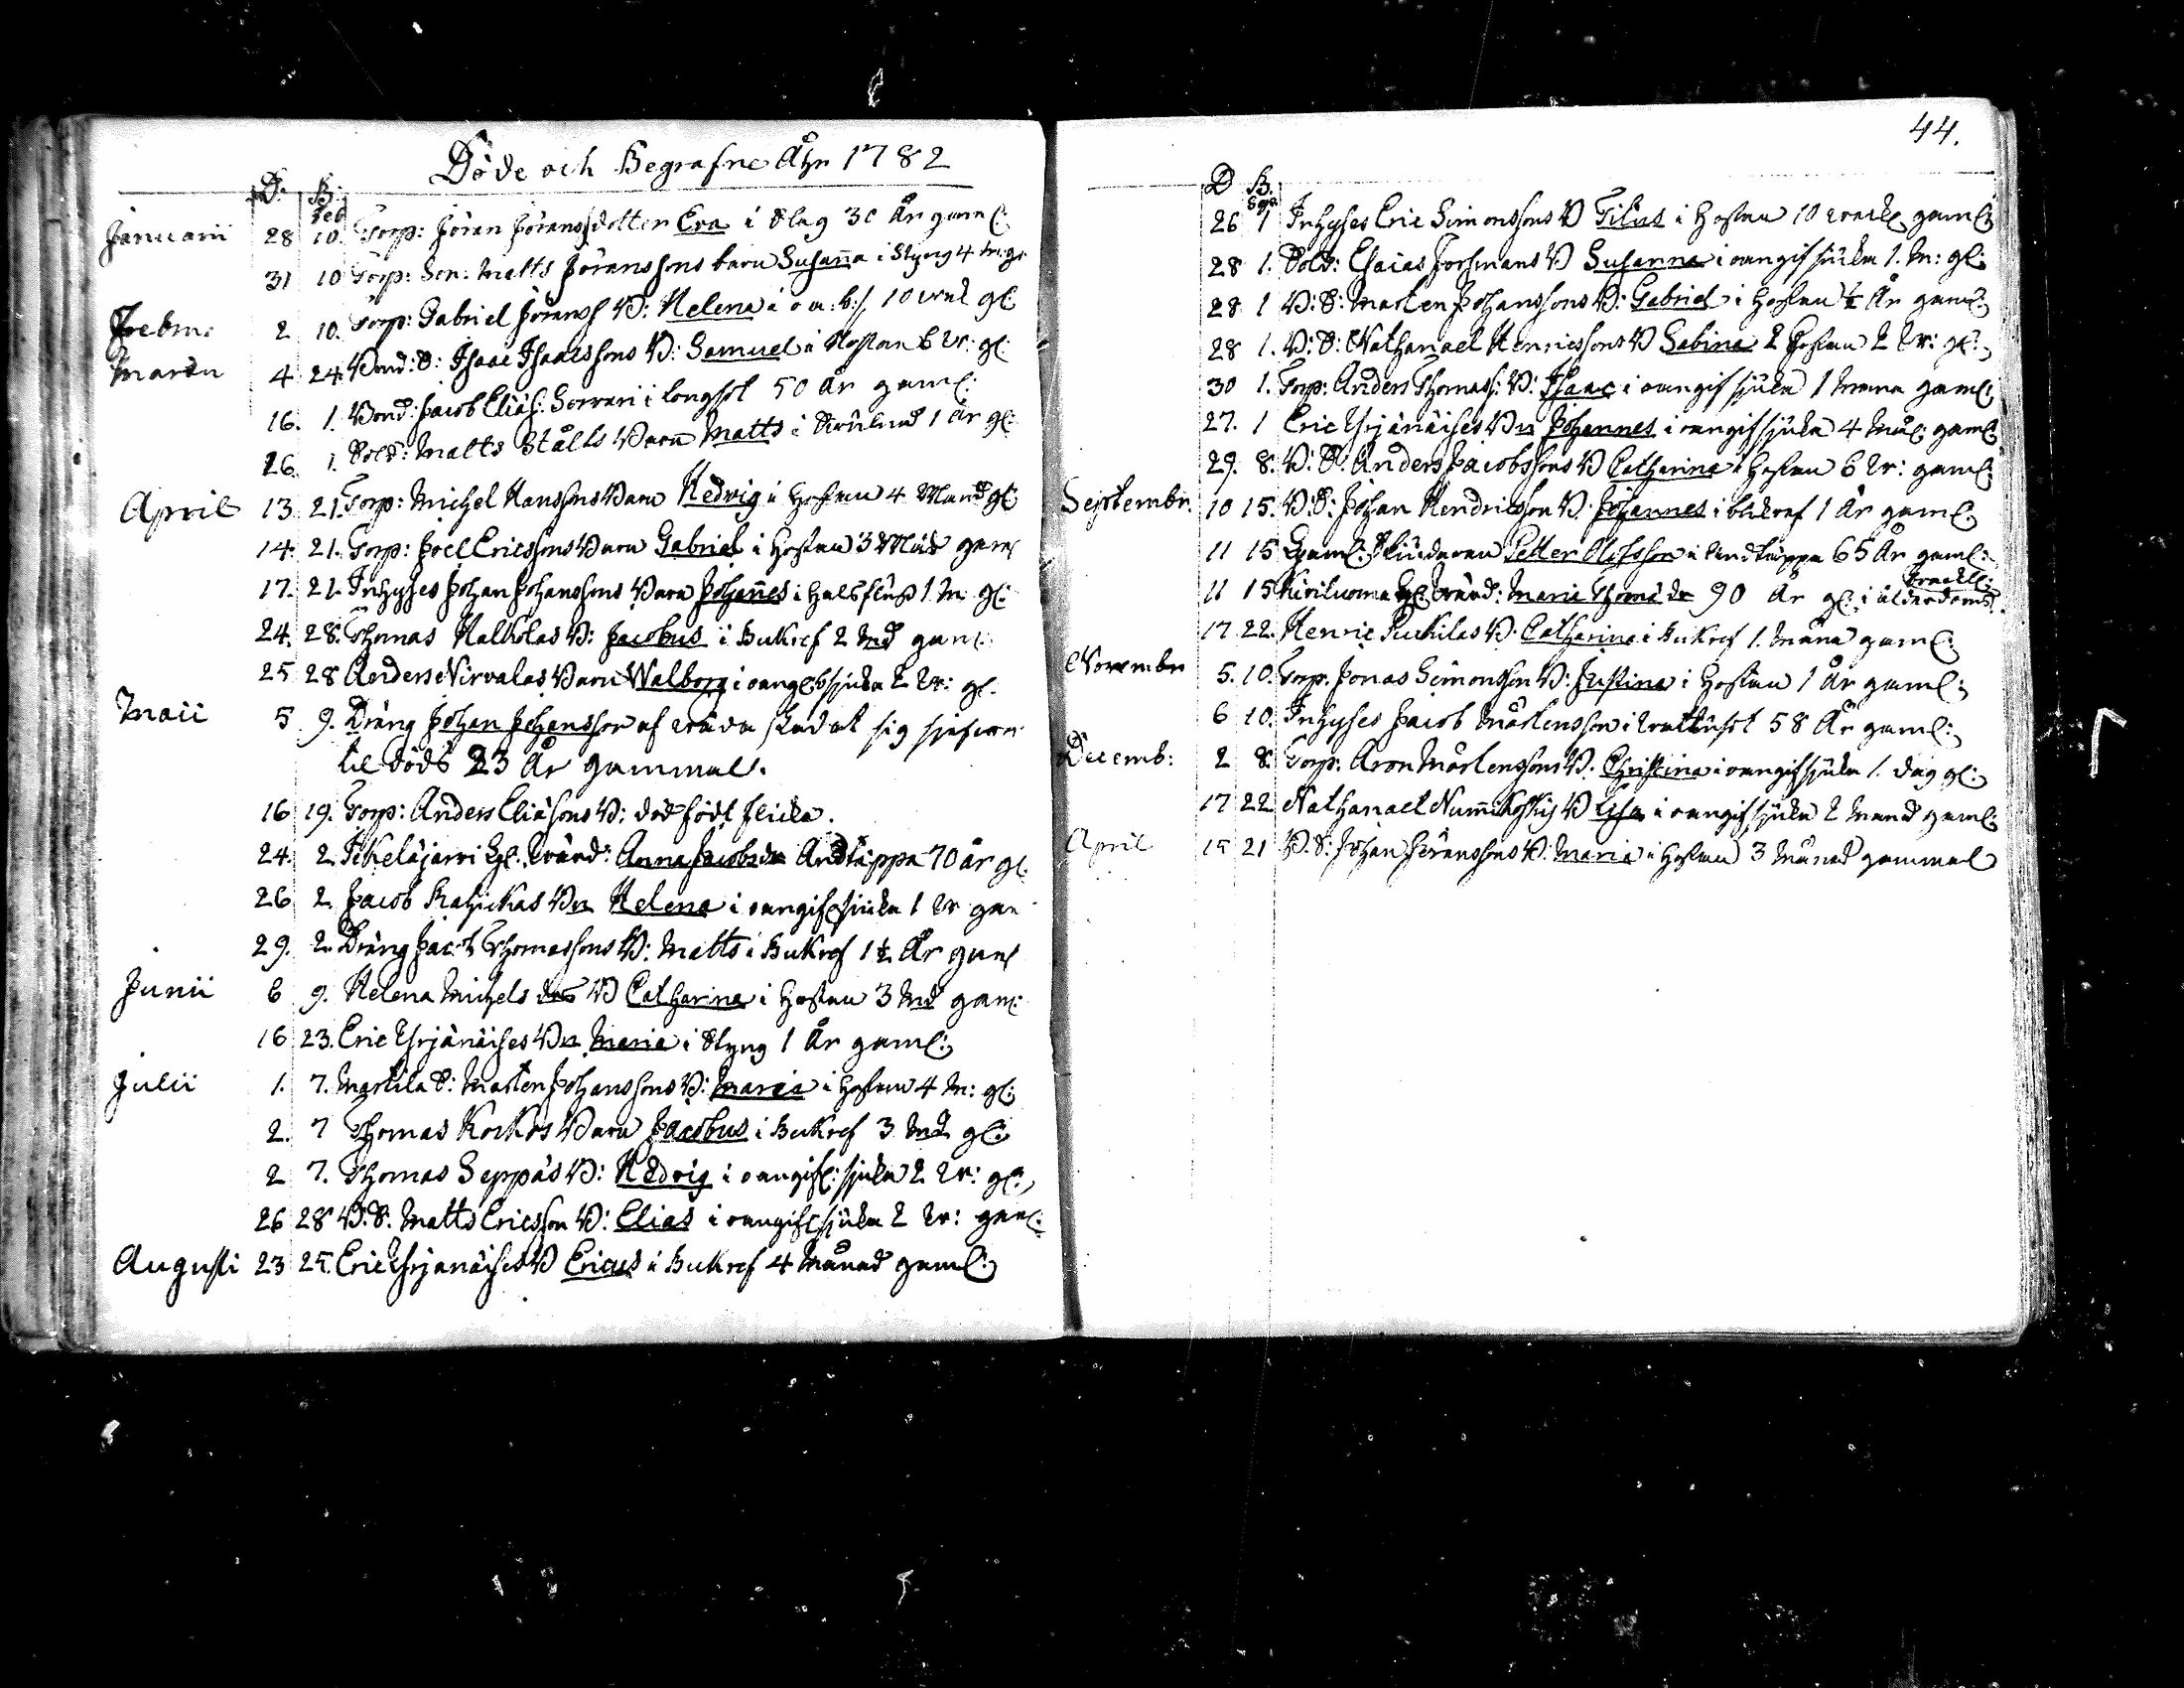 Döde och Begrafne Åhr 1782
D: B:
Feb
Januarii 28 10. Torp: Jöran Jöranss dotter Eva i Slag 30 År gaml:
31 10 Torp: Son: Matts Jöranssons barn Susanna i Styng 4 m: gl
Febru: 2 10. Torp: Gabriel Jöranss B: Helena i 10 vek gl:
Martii 4 24. Bond: S: Isaac Isaacssons B: Samuel i Hostan 6 w: gl:
16. 1. Bond: Jacob Eliæs: Sorvari i lungsot 50 År gaml:
26. 1. Sold: Matts Ståhls Barn Matts i 1 År gl:
April 13 21. Torp: Michel Hanssons Barn Hedvig i Hostan 4 Månd gl:
14. 21. Torp: Joel Ericssons Barn Gabriel i Hostan 3 Mån gaml
17. 21. Inhyses Johan Johanssons Barn Johannes i halsfluss 1 M. gl:
24. 28. Thomas Kalkolas B: Jacobus i Bukref 2 Md gaml:
25 28 Anders Nirvalas Barn Walborg i oang: sjuka 2 w: gl.
Maii 5 9. Dräng Johan Johansson af våda skadat sig sjelf
til döds 23 År gammal.
16 19. Torp: Anders Eliæsons B: död födt flicka.
24. 2. Ikeläjärvi Gl. Värd: Anna Jacobsdr Andtäppa 70 år gl.
26 2. Jacob Katjukas Bn Helena i oangif sjuka 1 w gam
29. 2. Dräng Jacob Thomassons B: Matts i Bukref 1½ År gaml
Junii 6 9. Helena Michels drs B Catharina i Hostan 3 Md gam:
16 23. Eric Yrjänäises Bn Maria i Styng 1 År gaml:
Julii 1. 7. Martila S: Mårten Johanssons B: Maria i Hostan 4 M: gl:
2. 7 Thomas Korkos Barn Jacobus i Bukref 3 Md gl:
2 7. Thomas Seppäs B: Hedvig i oangif: sjuka 2 w: gl:
26 28 B: S: Matts Ericsson B: Elias i oangif sjuka 2 w: gaml:
Augusti 23 25. Eric Yrjänäises B Ericus i Bukref 4 Månad gaml:
44.
D B.
26 1 Inhyses Eric Simonssons B Titus i Hostan 10 veck gaml:
28 1. Sold: Esaias Forsmans B Susanna i oangif sjuka 1. M: gl:
28 1 B: S: Mårten Johanssons B: Gabriel i Hostan ½ År gaml:
28 1. B: S: Nathanael Henricssons B Sabina 2 Hostan 2 w: gl:
30 1. Torp: Anders Thomass: B: Isaac i oangif sjuka 1 Måna gaml:
27. 1 Eric Yrjänäises Bn Johannes i oangif sjuka 4 Mån: gaml:
29. 8. B: S: Anders Jacobssons B Catharina i Hostan 6 w: gaml:
Septembr. 10 15. B: S: Johan Hendricsson B. Johannes i bukref 1 År gaml:
11 15 Gaml: Petter Olofsson i Andtäppa 65 År gaml:
11 15 Kiviluoma Gl Värd: Maria Thomædr 90 År gl: i ålderdoms
17 22. Henric Puckilas B. Catharina i Bukref 1. Måna gaml:
Novembr 5. 10. Torp. Jonas Simonsson B: Justina i Hostan 1 År gaml:
6 10. Inhyses Jacob Mårtensson i Vattusot 58 År gaml:
Decemb: 2 8. Torp: Aron Mårtenssons B: Christina i oangif sjuka 1. dag gl:
17 22. Nathanael Nummikoskis B Lisa i oangif sjuka 2 Månd gaml:
April 15 21 B. S: Johan Jöranssons B: Maria i Hostan 3 Månad gammal